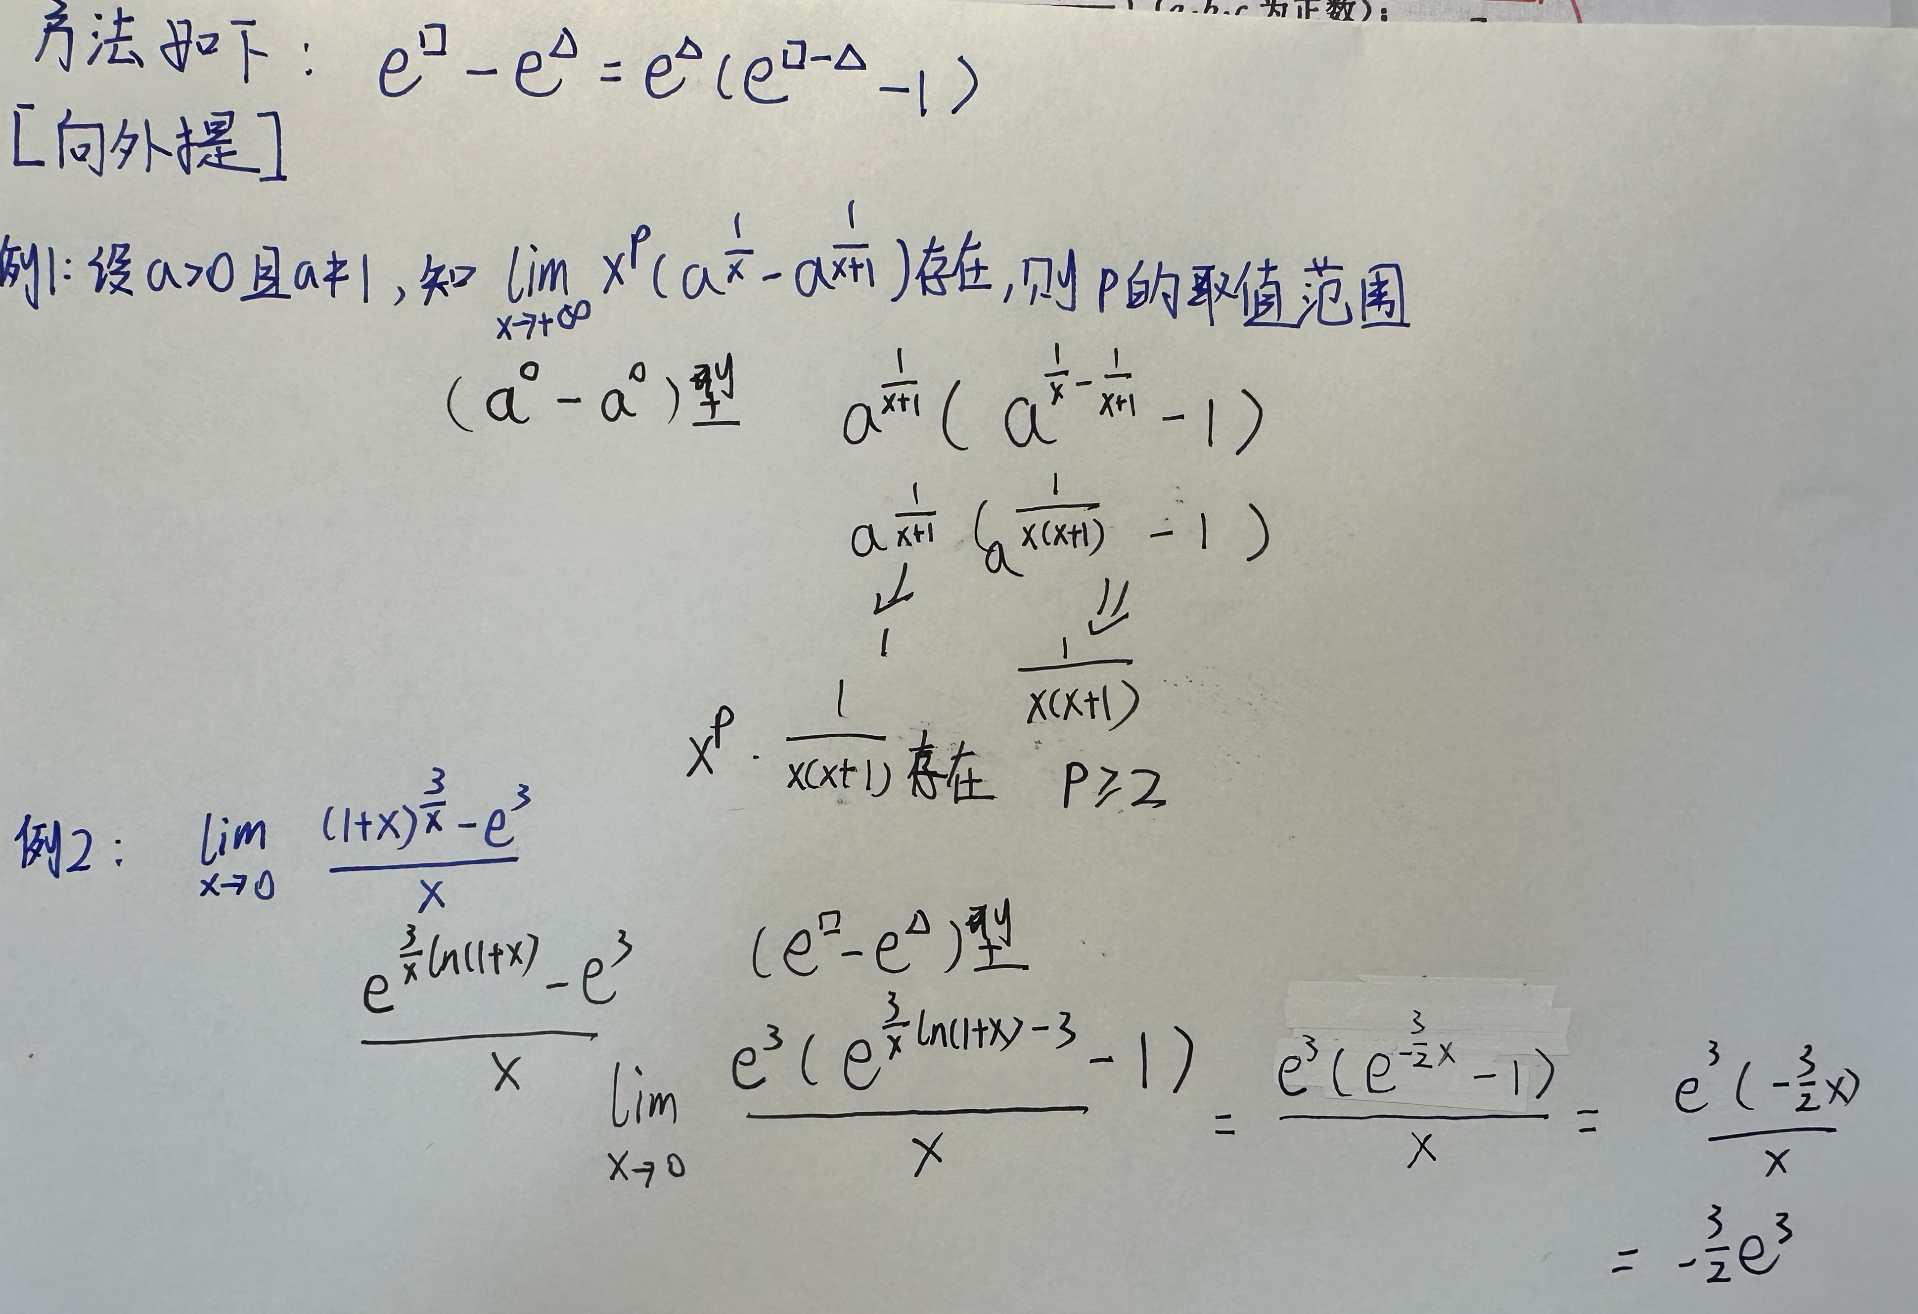 (a.b.c 为正数):
方法如下: e^□ - e^△ = e^△(e^(□-△) - 1)
[向外提]
例1: 设a>0且a≠1,知 lim x→+∞ x^p(a^(1/x) - a^(1/(x+1)))存在,则P的取值范围
(a^0 - a^0)型 a^(1/(x+1))(a^(1/x - 1/(x+1)) - 1)
a^(1/(x+1))(a^(1/(x(x+1))) - 1)
↙ ⇙
1 1/(x(x+1))
x^p · 1/(x(x+1)) 存在 P≥2
例2: lim x→0 ((1+x)^(3/x) - e^3)/x
(e^(3/x ln(1+x)) - e^3)/x (e^□ - e^△)型
lim x→0 e^3(e^(3/x ln(1+x) - 3) - 1)/x = e^3(e^(-3/2 x) - 1)/x = e^3(-3/2 x)/x
= -3/2 e^3